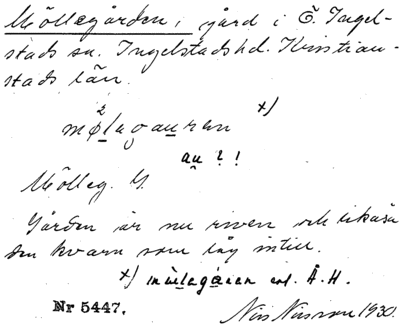 Möllegården, gård i Ö. Ingel-
stads sn. Ingelstads hd. Kristian-
stads län.
x)
au ? !
Mölleg. G.
Gården är nu riven och likaså
den kvarn som låg intill.
x) enl. Å.H.
Nr 5447.
Nils Nilsson 1930.